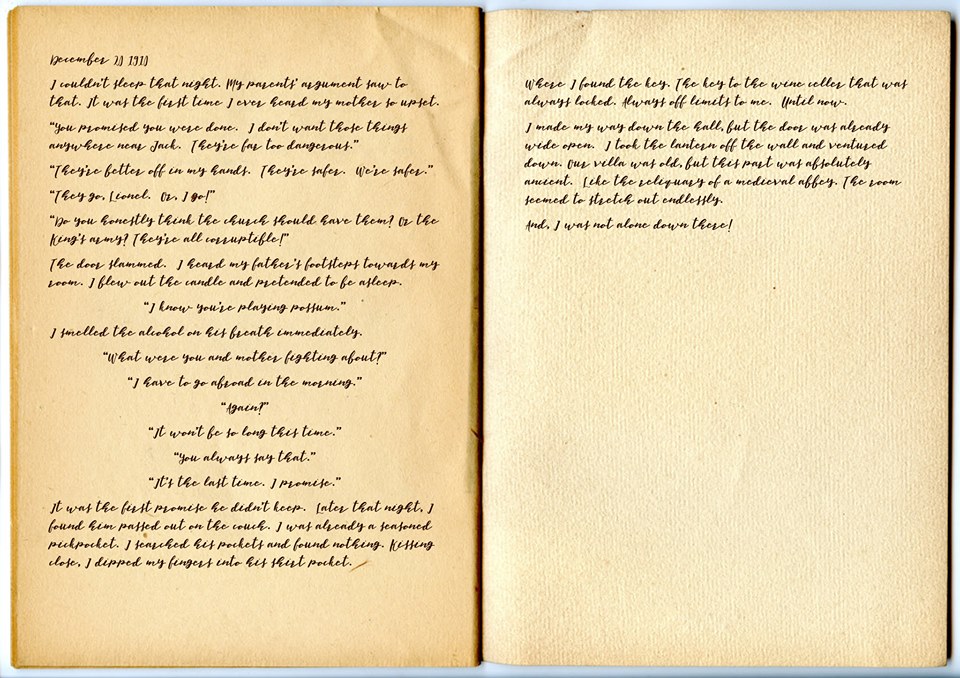 December 20 1910
I couldn't sleep that night. My parents' argument saw to
that. It was the first time I ever heard my mother so upset.
"You promised you were done. I don't want those things
anywhere near Jack. They're far too dangerous."
"They're better off in my hands. They're safer. We're safer."
"They go, Lionel. Or, I go!"
"Do you honestly think the church should have them? Or the
King's army? They're all corruptible!"
The door slammed. I heard my father's footsteps towards my
room. I blew out the candle and pretended to be asleep.
"I know you're playing possum."
I smelled the alcohol on his breath immediately.
"What were you and mother fighting about?"
"I have to go abroad in the morning."
"Again?"
"It won't be so long this time."
"You always say that."
"It's the last time. I promise."
It was the first promise he didn't keep. Later that night, I
found him passed out on the couch. I was already a seasoned
pickpocket. I searched his pockets and found nothing. Kissing
close, I dipped my fingers into his shirt pocket.
Where I found the key. The key to the wine celler that was
always locked. Always off limits to me. Until now.
I made my way down the hall, but the door was already
wide open. I took the lantern off the wall and ventured
down. Our villa was old, but this part was absolutely
ancient. Like the reliquary of a medieval abbey. The room
seemed to stretch out endlessly.
And, I was not alone down there!